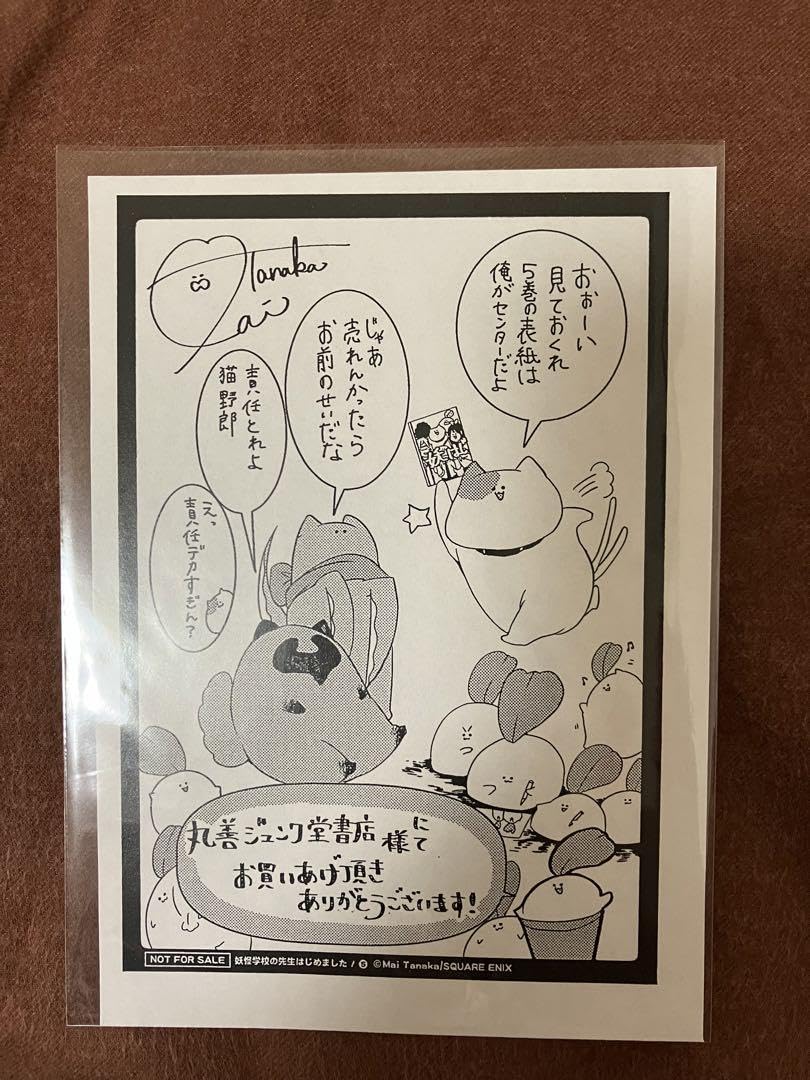 おぉーい
見ておくれ
5巻の表紙は
俺がセンターだよ
じゃあ
売れんかったら
お前のせいだな
責任とれよ
猫野郎
えっ
責任デカすぎん?
Tanaka
Mai
丸善ジュンク堂書店様にて
お買いあげ頂き
ありがとうございます!
NOT FOR SALE 妖怪学校の先生はじめました!5 ©Mai Tanaka/SQUARE ENIX